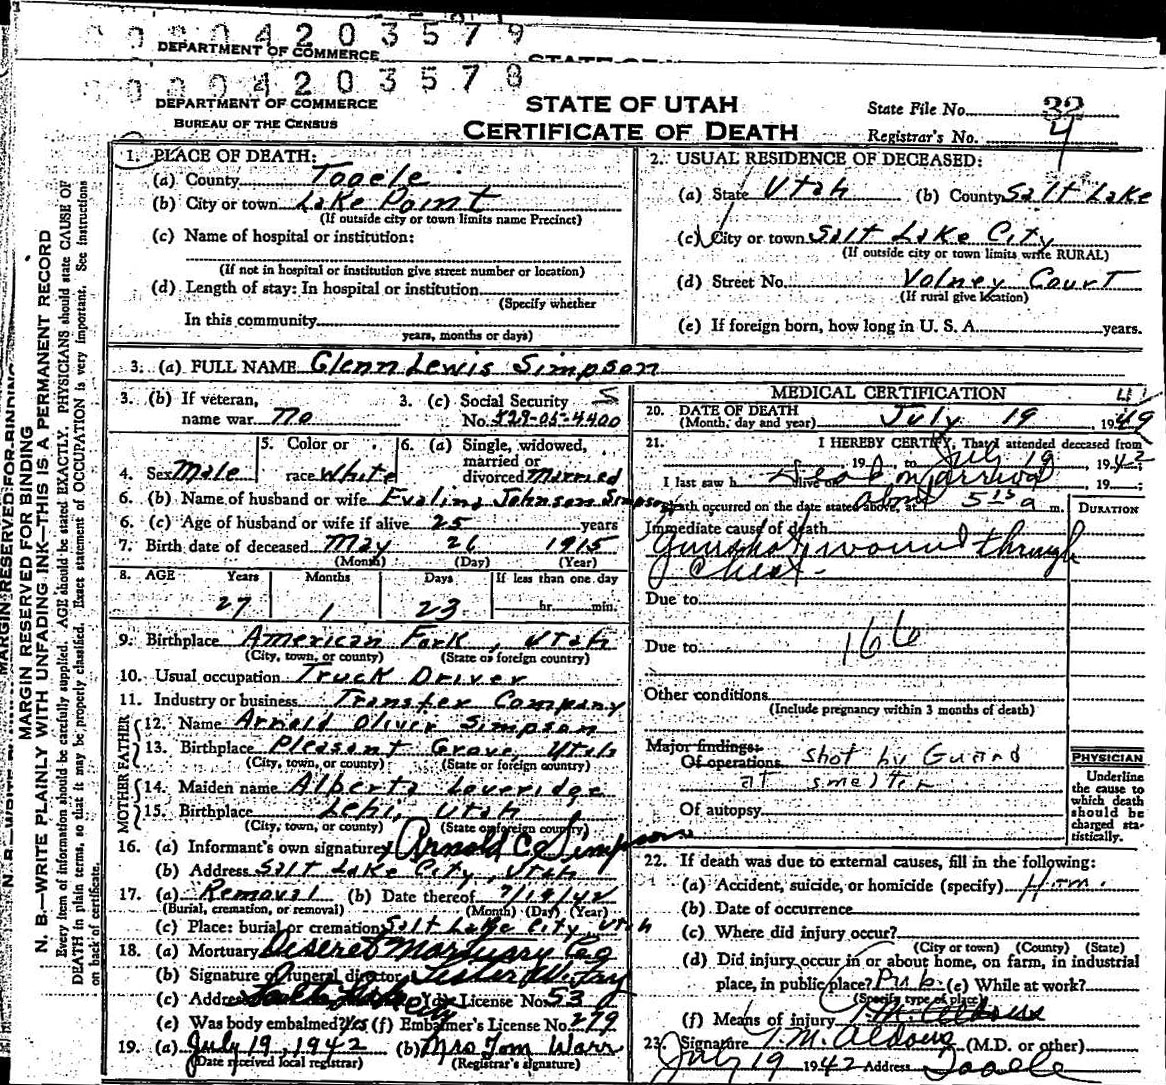 0 0 0 4 2 0 3 5 7 9
DEPARTMENT OF COMMERCE
0 0 0 4 2 0 3 5 7 8
DEPARTMENT OF COMMERCE
BUREAU OF THE CENSUS
STATE OF UTAH
CERTIFICATE OF DEATH
State File No. 32
Registrar's No. 4
MARGIN RESERVED FOR BINDING
N. B.—WRITE PLAINLY WITH UNFADING INK—THIS IS A PERMANENT RECORD
Every item of information should be carefully supplied. AGE should be stated EXACTLY. PHYSICIANS should state CAUSE OF
DEATH in plain terms, so that it may be properly classified. Exact statement of OCCUPATION is very important. See instructions
on back of certificate.
1. PLACE OF DEATH:
(a) County Tooele
(b) City or town Lake Point
(If outside city or town limits name Precinct)
(c) Name of hospital or institution:
(If not in hospital or institution give street number or location)
(d) Length of stay: In hospital or institution
(Specify whether
In this community
years, months or days)
2. USUAL RESIDENCE OF DECEASED:
(a) State Utah (b) County Salt Lake
(c) City or town Salt Lake City
(If outside city or town limits write RURAL)
(d) Street No. Volney Court
(If rural give location)
(e) If foreign born, how long in U. S. A. years.
3. (a) FULL NAME Glenn Lewis Simpson
3. (b) If veteran,
name war no
3. (c) Social Security
No. 529-05-4400
4. Sex Male
5. Color or
race White
6. (a) Single, widowed,
married or
divorced Married
6. (b) Name of husband or wife Evalina Johnson Simpson
6. (c) Age of husband or wife if alive 25 years
7. Birth date of deceased May 26 1915
(Month) (Day) (Year)
8. AGE Years Months Days If less than one day
27 1 23 hr. min.
9. Birthplace American Fork, Utah
(City, town, or county) (State or foreign country)
10. Usual occupation Truck Driver
11. Industry or business Transfer Company
FATHER
12. Name Arnold Oliver Simpson
13. Birthplace Pleasant Grove Utah
(City, town, or county) (State or foreign country)
MOTHER
14. Maiden name Alberta Loveridge
15. Birthplace Lehi, Utah
(City, town, or county) (State or foreign country)
16. (a) Informant's own signature Arnold O Simpson
(b) Address Salt Lake City, Utah
17. (a) Removal (b) Date thereof 7/19/42
(Burial, cremation, or removal) (Month) (Day) (Year)
(c) Place: burial or cremation Salt Lake City, Utah
18. (a) Mortuary Deseret Mortuary Co
(b) Signature of funeral director
(c) Address Salt Lake City (d) License No. 53
(e) Was body embalmed? Yes (f) Embalmer's License No. 279
19. (a) July 19, 1942 (b) Mrs Tom Warr
(Date received local registrar) (Registrar's signature)
MEDICAL CERTIFICATION
20. DATE OF DEATH
(Month, day and year) July 19, 1949
21. I HEREBY CERTIFY, That I attended deceased from
19 , to July 19, 1942
I last saw h alive on Dead on arrival , 19
Death occurred on the date stated above, at about 5 15 a m.
DURATION
Immediate cause of death
Gunshot wound through
Chest
Due to
Due to 166
Other conditions
(Include pregnancy within 3 months of death)
Major findings:
Of operations shot by Guard
at smelter
Of autopsy
PHYSICIAN
Underline
the cause to
which death
should be
charged sta-
tistically.
22. If death was due to external causes, fill in the following:
(a) Accident, suicide, or homicide (specify) Hom.
(b) Date of occurrence
(c) Where did injury occur?
(City or town) (County) (State)
(d) Did injury occur in or about home, on farm, in industrial
place, in public place? Pub. (e) While at work?
(Specify type of place)
(f) Means of injury
23. Signature T. M. Aldous (M.D. or other)
July 19 1942 Address Tooele